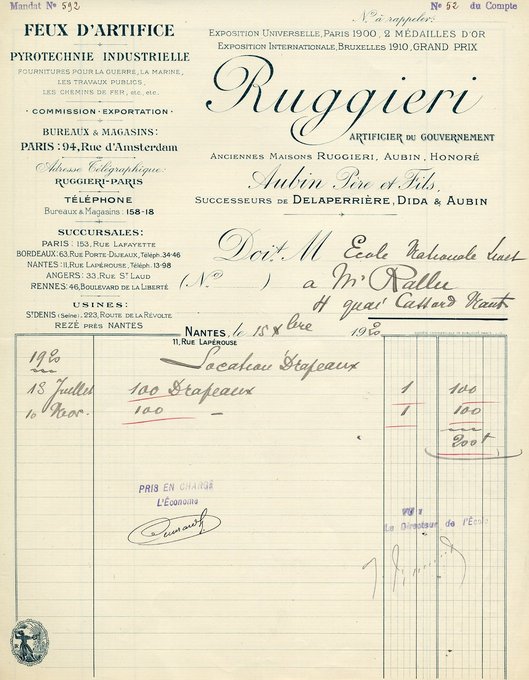 Mandat No 592
No 52 du Compte
No à rappeler:
FEUX D'ARTIFICE
PYROTECHNIE INDUSTRIELLE
FOURNITURES POUR LA GUERRE, LA MARINE,
LES TRAVAUX PUBLICS,
LES CHEMINS DE FER, etc., etc.
COMMISSION - EXPORTATION
BUREAUX & MAGASINS:
PARIS: 94, Rue d'Amsterdam
Adresse Télégraphique:
RUGGIERI-PARIS
TÉLÉPHONE
Bureaux & Magasins: 158-18
SUCCURSALES:
PARIS: 153, RUE LAFAYETTE
BORDEAUX: 63, RUE PORTE-DIJEAUX, Téléph. 34-46
NANTES: 11, RUE LAPÉROUSE, Téléph. 13-98
ANGERS: 33, RUE ST LAUD
RENNES: 46, BOULEVARD DE LA LIBERTÉ
USINES:
ST DENIS (Seine), 223, ROUTE DE LA RÉVOLTE
REZÉ PRÈS NANTES
EXPOSITION UNIVERSELLE, PARIS 1900, 2 MÉDAILLES D'OR
EXPOSITION INTERNATIONALE, BRUXELLES 1910, GRAND PRIX
Ruggieri
ARTIFICIER DU GOUVERNEMENT
ANCIENNES MAISONS RUGGIERI, AUBIN, HONORÉ
Aubin Père et Fils,
SUCCESSEURS DE DELAPERRIÈRE, DIDA & AUBIN
Doit M Ecole Nationale
(No ) a Mr Rallu
4 quai Cassard
NANTES, le 15 Xbre 1920
11, RUE LAPÉROUSE
1920 Location Drapeaux
13 Juillet 100 Drapeaux 1 100
10 Nov. 100 — 1 100
200f
PRIS EN CHARGE
L'Économe
VU:
Le Directeur de l'École